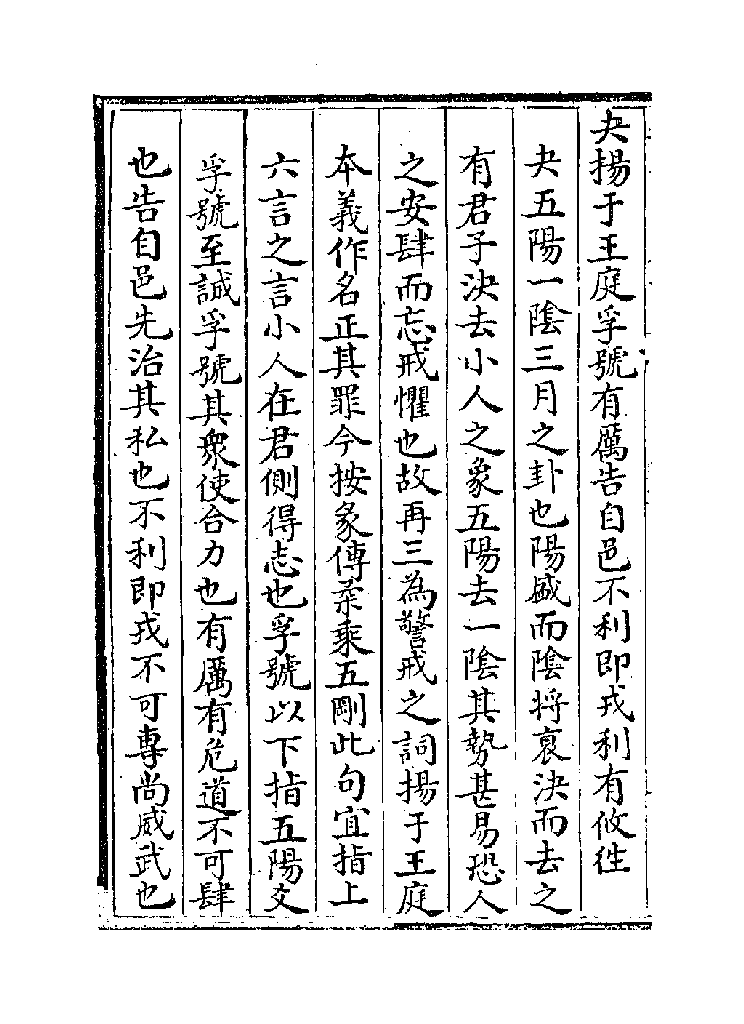 夬揚于王庭孚號有厲告自邑不利即戎利有攸往
夬五陽一陰三月之卦也陽盛而陰將衰決而去之
有君子決去小人之象五陽去一陰其勢甚易恐人
之安肆而忘戒懼也故再三為警戒之詞揚于王庭
本義作名正其罪今按彖傳柔乘五剛此句宜指上
六言之言小人在君側得志也孚號以下指五陽文
孚號至誠孚號其衆使合力也有厲有危道不可肆
也告自邑先治其私也不利即戎不可專尚威武也